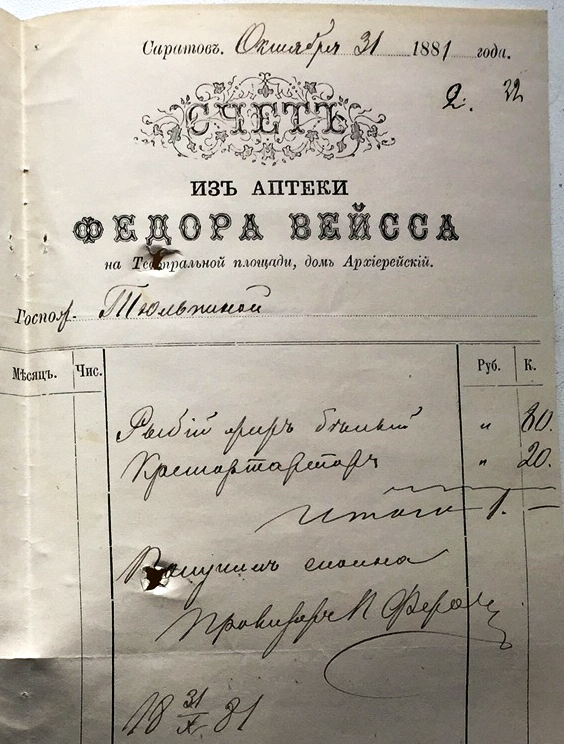 Саратовъ. Октября 31 1881 года.
2. 32
СЧЕТЪ
ИЗЪ АПТЕКИ
ФЕДОРА ВЕЙССА
на Театральной площади, домъ Архіерейскій.
Госпож. Тюльпиной
Мѣсяцъ. Чис. Руб. К.
Рыбій жиръ бѣлый „ 80.
Креmортартаръ „ 20.
Итого 1. —
Получилъ сполна
Провизоръ
18 31/X 81